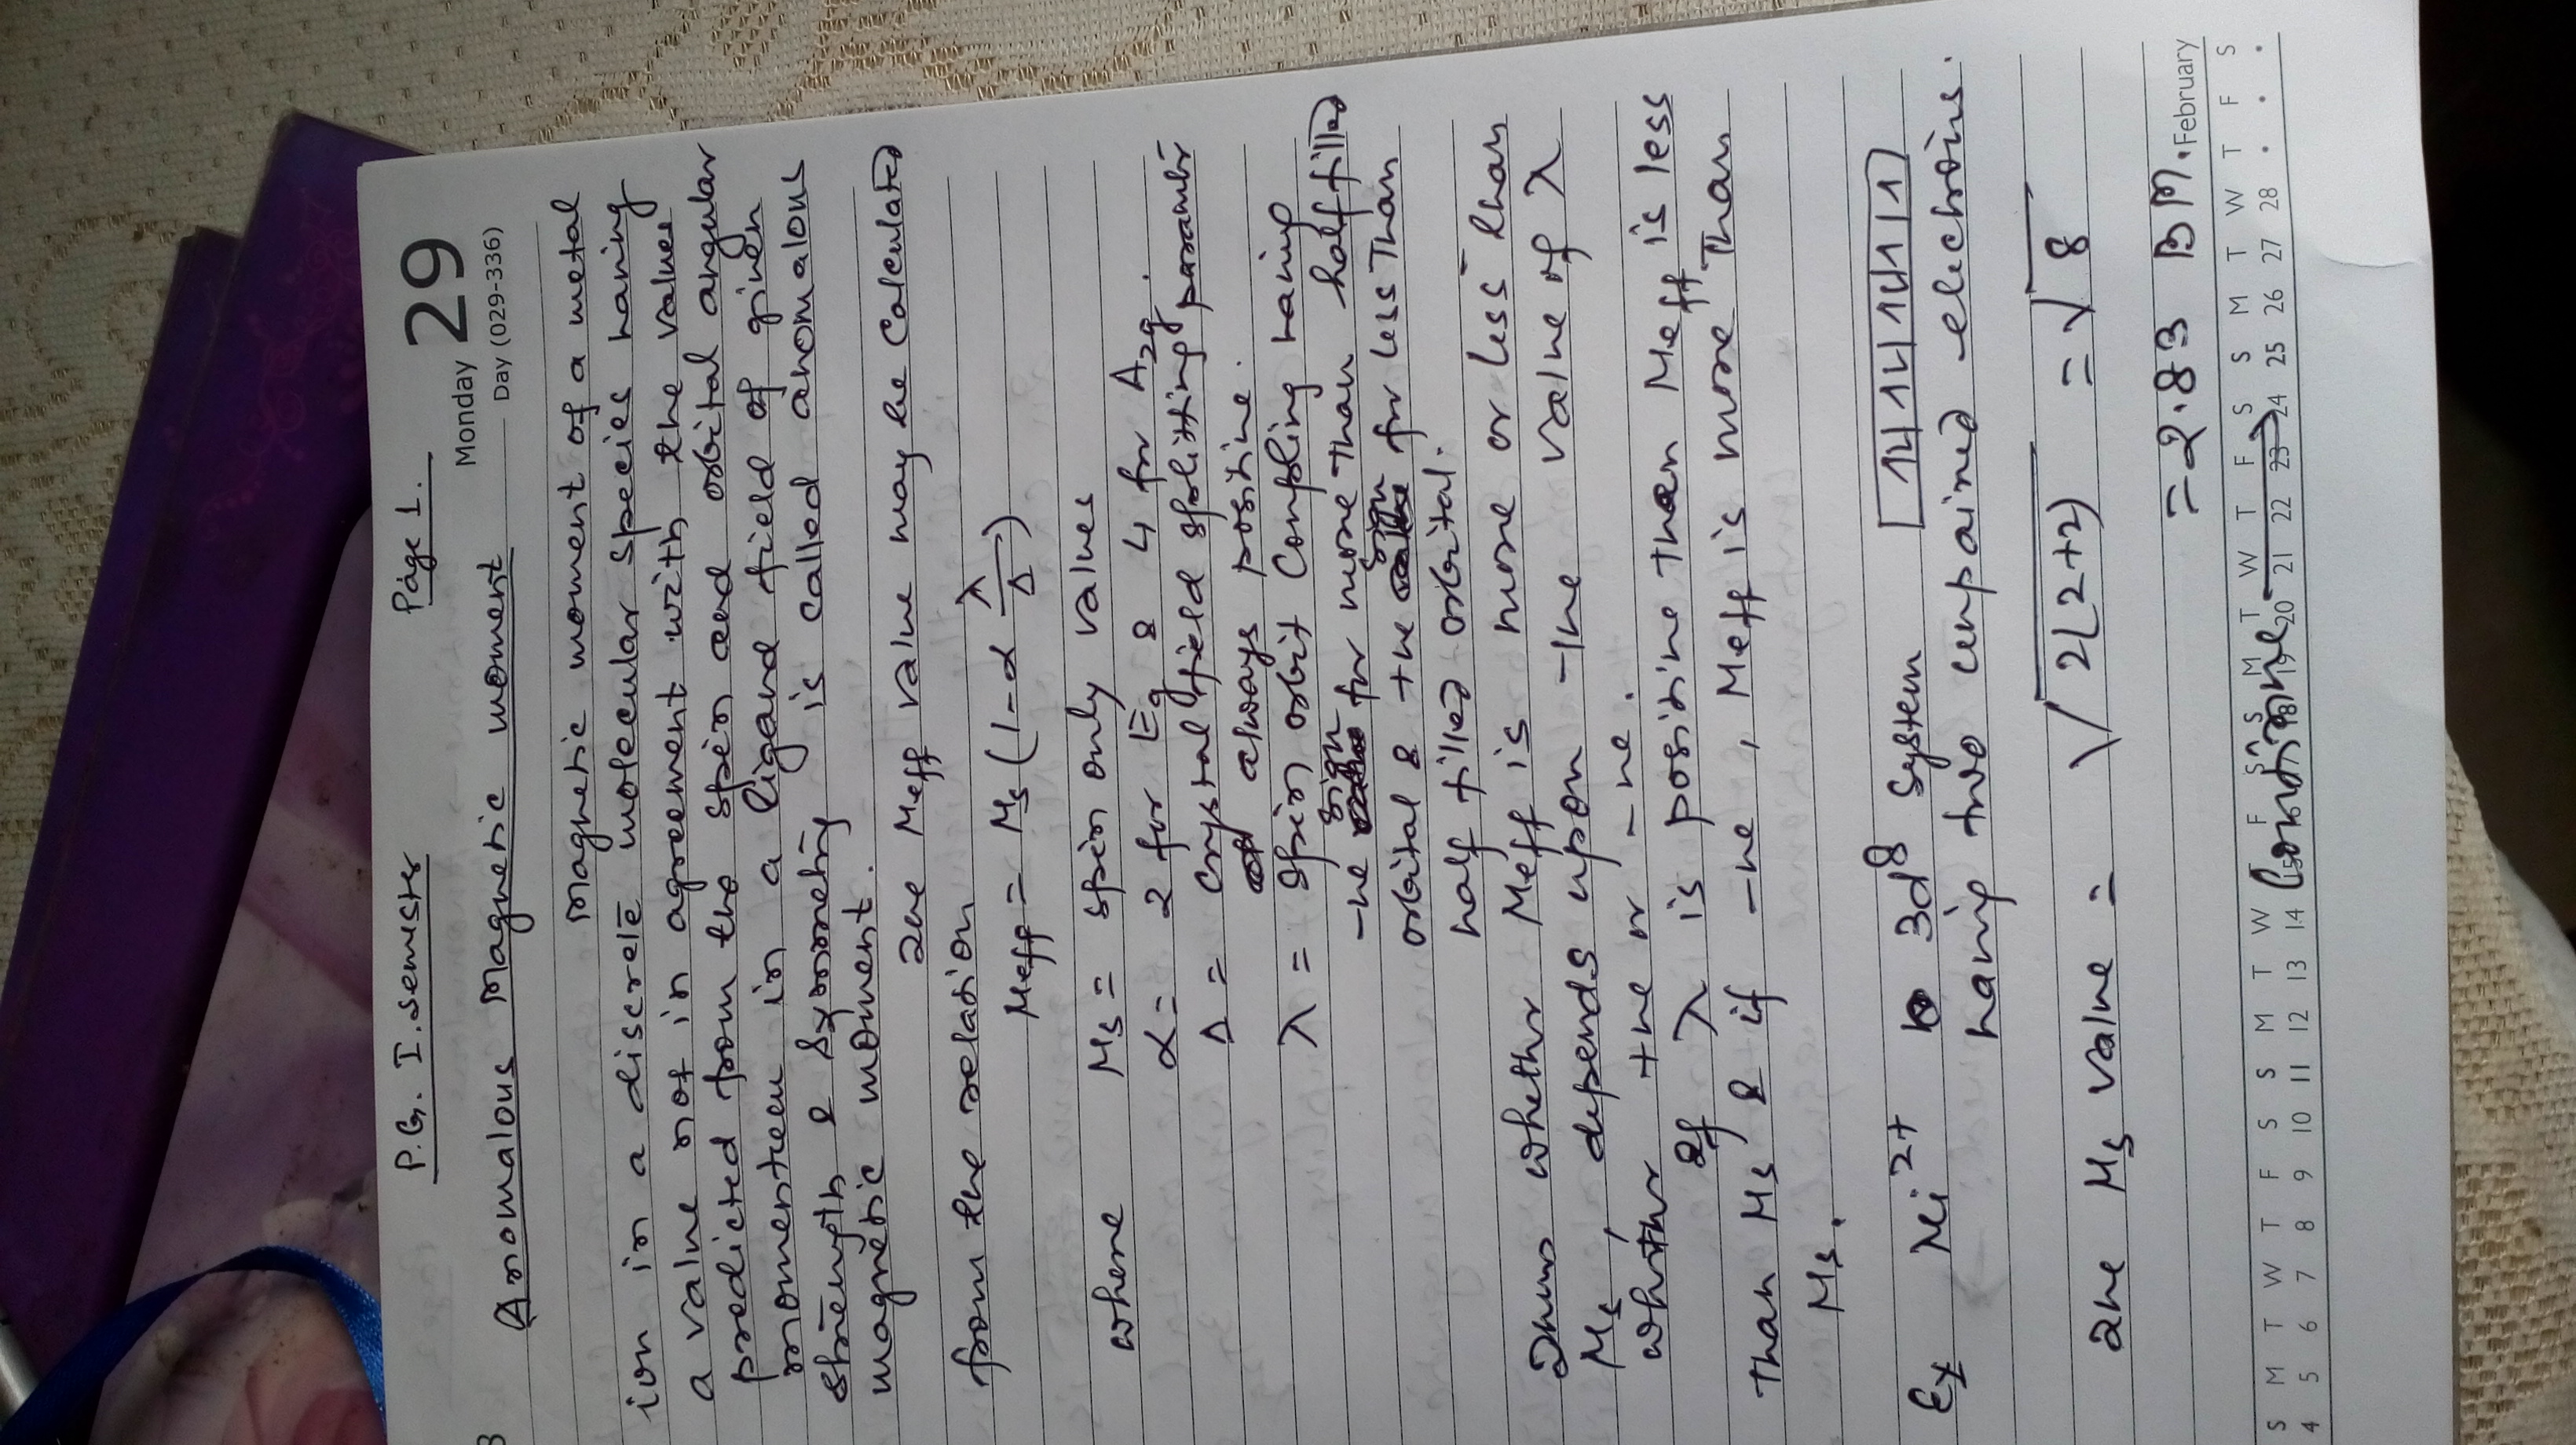 P.G. I. Semester Page 1.
Monday 29
Day (029-336)
Anomalous Magnetic moment
Magnetic moment of a metal
ion in a discrete molecular species having
a value not in agreement with the values
predicted from the spin and orbital angular
momenteem in a ligand field of given
strength & symmetry is called anomalous
magnetic moment.
The Meff value may be calculated
from the relation
Meff = Ms (1-α λ/Δ)
where Ms = spin only values
α = 2 for Eg & 4 for A2g.
Δ = crystal field splitting
always positive.
λ = spin orbit coupling having
-ve sign for more than half filled
orbital & +ve sign for less than
half filled orbital.
Thus whether Meff is more or less than
Ms, depends upon -the value of λ
whether +ve or -ve.
If λ is positive then Meff is less
than Ms & if -ve, Meff is more than
Ms.
Ex Ni2+ 3d8 System 1L 1L 1L 1 1
having two unpaired electrons.
The Ms value = √2(2+2) = √8
= 2.83 BM.
February
S M T W T F S S M T W T F S S M T W T F S S M T W T F S
4 5 6 7 8 9 10 11 12 13 14 15 18 19 20 21 22 23 24 25 26 27 28 . . .
Continue